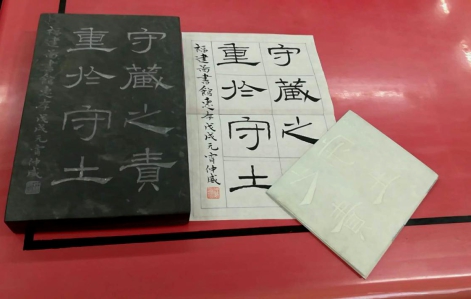 守藏之責
重於守土
福建圖書館惠存戊戌元宵仲威
守藏之
重於守土
福建圖書館惠存戊戌元宵仲威